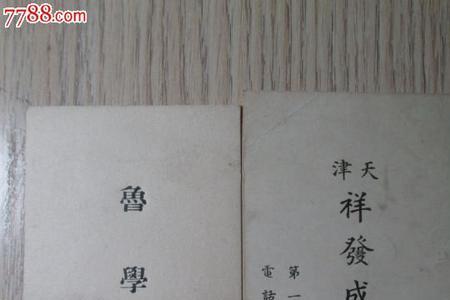 7788.com
天津
祥發成
第一
電話
魯學